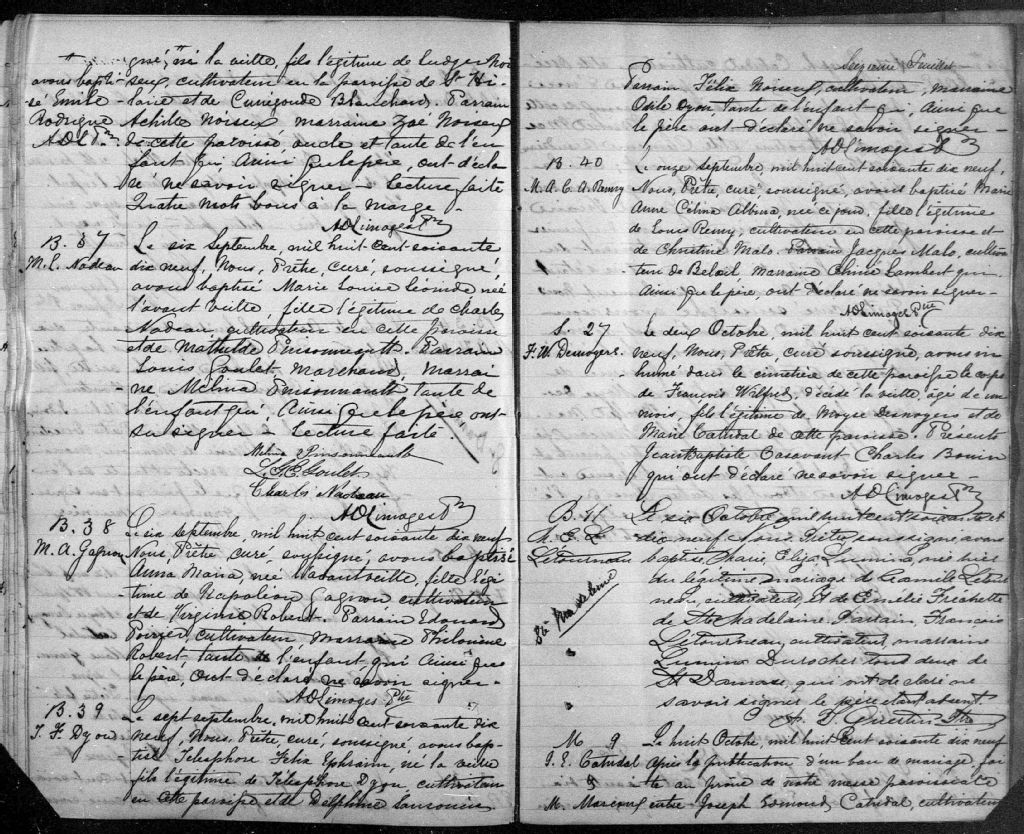 gné, né la veille, fils légitime de Ludger Noi
avons bapti- seux, cultivateur en la paroisse de St Hi-
sé Emile laire et de Cunégonde Blanchard. Parrain
Rodrigue Achille Noiseux marraine Zoé Noiseux
ADL Ptre de cette paroisse, oncle et tante de l'en-
fant qui Ainsi que le père, ont décla
ré ne savoir signer - Lecture faite
Quatre mots bons à la marge -
ADLimoges Ptre
B. 37 Le six Septembre, mil huit cent soixante
M. L. Nadeau dix neuf, Nous, Prêtre, curé, soussigné,
avons baptisé Marie Louise Léonide née
l'avant veille, fille légitime de Charles
Nadeau cultivateur en cette paroisse
et de Mathilde Prisonneault. Parrain
Louis Goulet Marchand, Marrai
ne Melina Prisonnault tante de
l'enfant qui, Ainsi que le père ont
su signer - Lecture faite.
Melina Prinsonnault
Goulet
Charles Nadeau
ADLimoges Ptre
B. 38 Le six septembre, mil huit cent soixante dix neuf
M. A. Gagnon Nous Prêtre, curé, soussigné, avons baptisé
Anna Maria, née l'avant veille, fille légi
time de Napoléon Gagnon cultivateur
et de Virginie Robert. Parrain Edouard
Poirier, cultivateur Marraine Philomène
Robert tante de l'enfant, qui Ainsi que
le père, ont déclaré ne savoir signer -
ADLimoges Ptre
B. 39 Le sept septembre, mil huit cent soixante dix
T. F. Dyon neuf, Nous, Prêtre, curé, soussigné, avons bap-
tisé Télesphore Félix Ephraim, né la veille
fils légitime de Télesphore Dyon, cultivateur
en cette paroisse et de Delphine Sansoucie
Seizième Feuillet
Parrain Félix Noiseux, cultivateur, Marraine
Odile Dyon, tante de l'enfant qui, Ainsi que
le père ont déclaré ne savoir signer -
ADLimoges Ptre
B. 40 Le onze septembre, mil huit cent soixante dix neuf,
M. A. C. A. Remy Nous, Prêtre, curé soussigné, avons baptisé Marie
Anne Célina Albina, née ce jour, fille légitime
de Louis Remy, cultivateur en cette paroisse et
de Christine Malo. Parrain Jacques Malo, cultiva
teur de Belœil Marraine Lambert qui
Ainsi que le père, ont déclaré ne savoir signer -
ADLimoges Ptre
S. 27 Le deux Octobre, mil huit cent soixante dix
F. W. Desnoyers. neuf, Nous, Prêtre, curé soussigné, avons in
humé dans le cimetière de cette paroisse le corps
de François Wilfred, décédé la veille, agé de un
mois, fils légitime de Moyse Desnoyers et de
Marie Catudal de cette paroisse. Présents
Jean Baptiste Casavant Charles Bonin
qui ont déclaré ne savoir signer -
ADLimoges Ptre
B. 41 Le six Octobre, mil huit cent soixante et
M. E. L. dix neuf Nous Prêtre, soussigné, avons
Létourneau baptisé Marie, Eliza, Lumina, née hier
du légitime mariage de Camille Létour
neau, cultivateur, et de Emélie Fréchette
de Ste Madelaine. Parrain, François
Létourneau, cultivateur, marraine
Lumina Durocher tous deux de
St Damase, qui ont déclaré ne
savoir signer le père étant absent.
Ptre
M 9 Le huit Octobre, mil huit cent soixante dix neuf
J. E. Catudal Après la publication d'un ban de mariage, fai
& te au prône de notre messe paroissiale
M. Marcoux entre Joseph Edmond Catudal, cultivateur